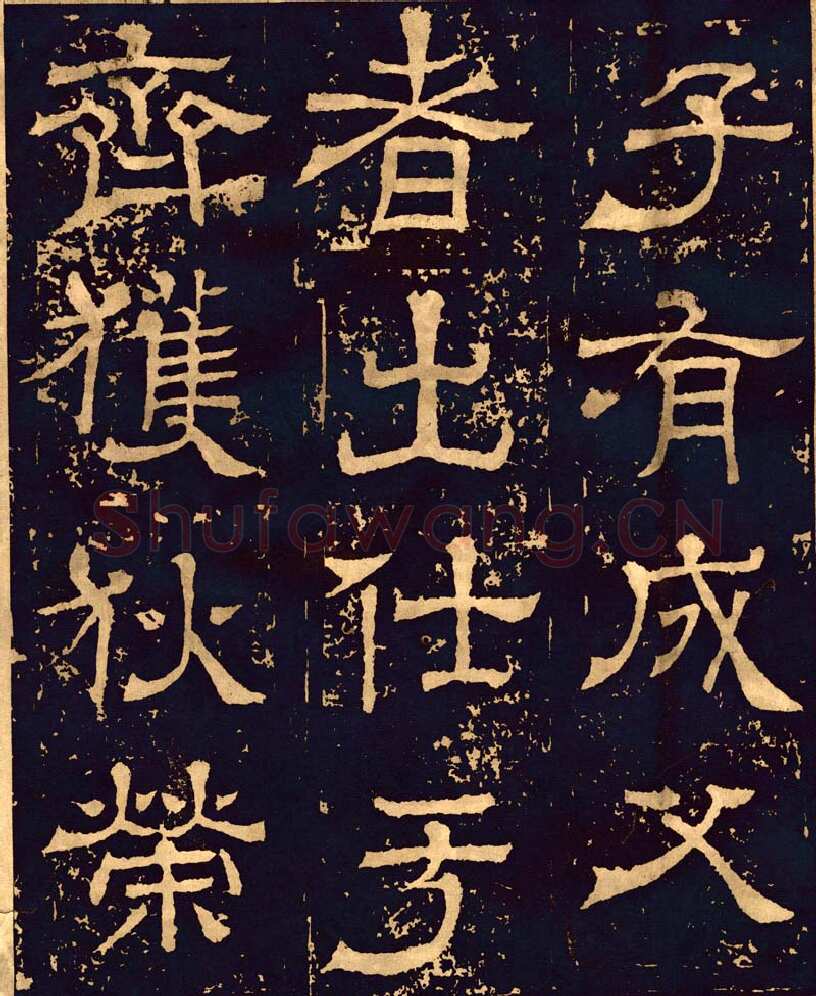 子有成父
者出仕于
齊獲狄榮
Shufawang.CN